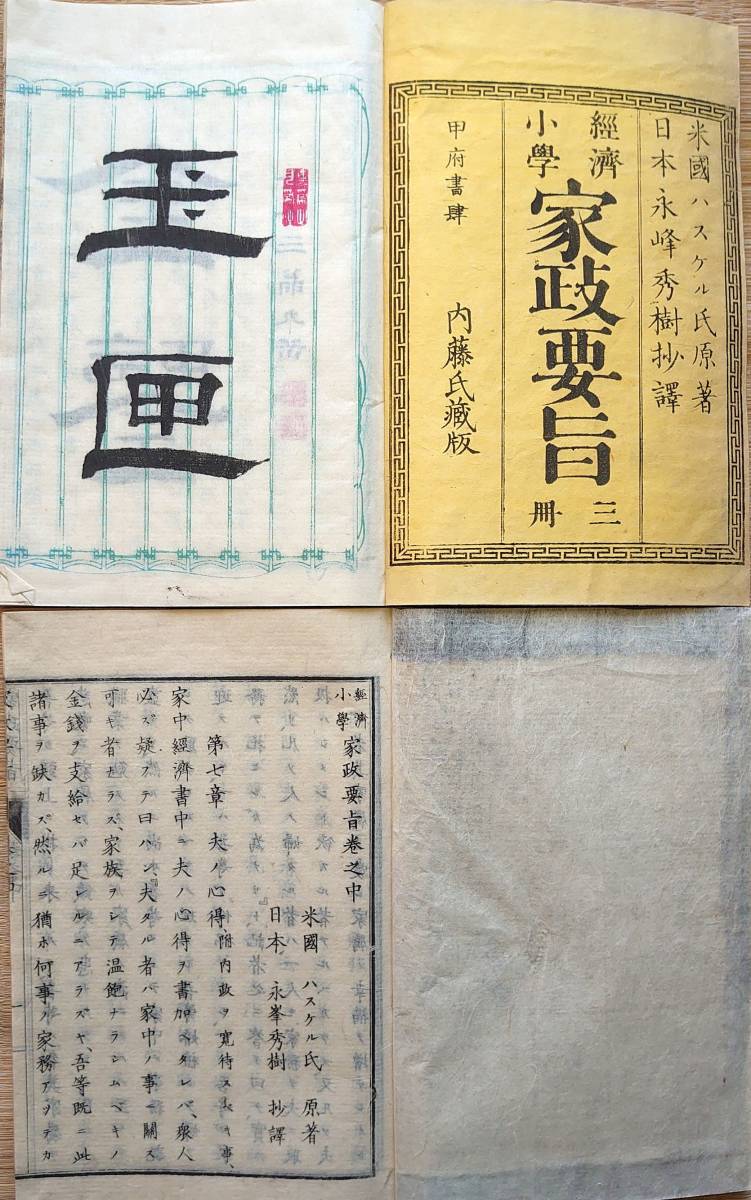 米國ハスケル氏原著
日本永峰秀樹抄譯
經濟
小學
家政要旨
三冊
甲府書肆
内藤氏藏版
玉
匣
經濟
小學
家政要旨卷之中
米國 ハスケル氏 原著
日本 永峯秀樹 抄譯
第七章 夫ノ心得、附内政ヲ寛待スベキ事、
家中經濟書中ニ夫ノ心得ヲ書加ヘタレバ、衆人
必ズ疑フテ曰ハン、夫タル者ハ家中ノ事ニ關ス
可キ者ナラズ、家族ヲシテ温飽ナラシムベキノ
金錢ヲ支給セバ足レルニアラズヤ、吾等既ニ此
諸事ヲ缺カズ、然ルニ猶ホ何事ノ家務アツテカ